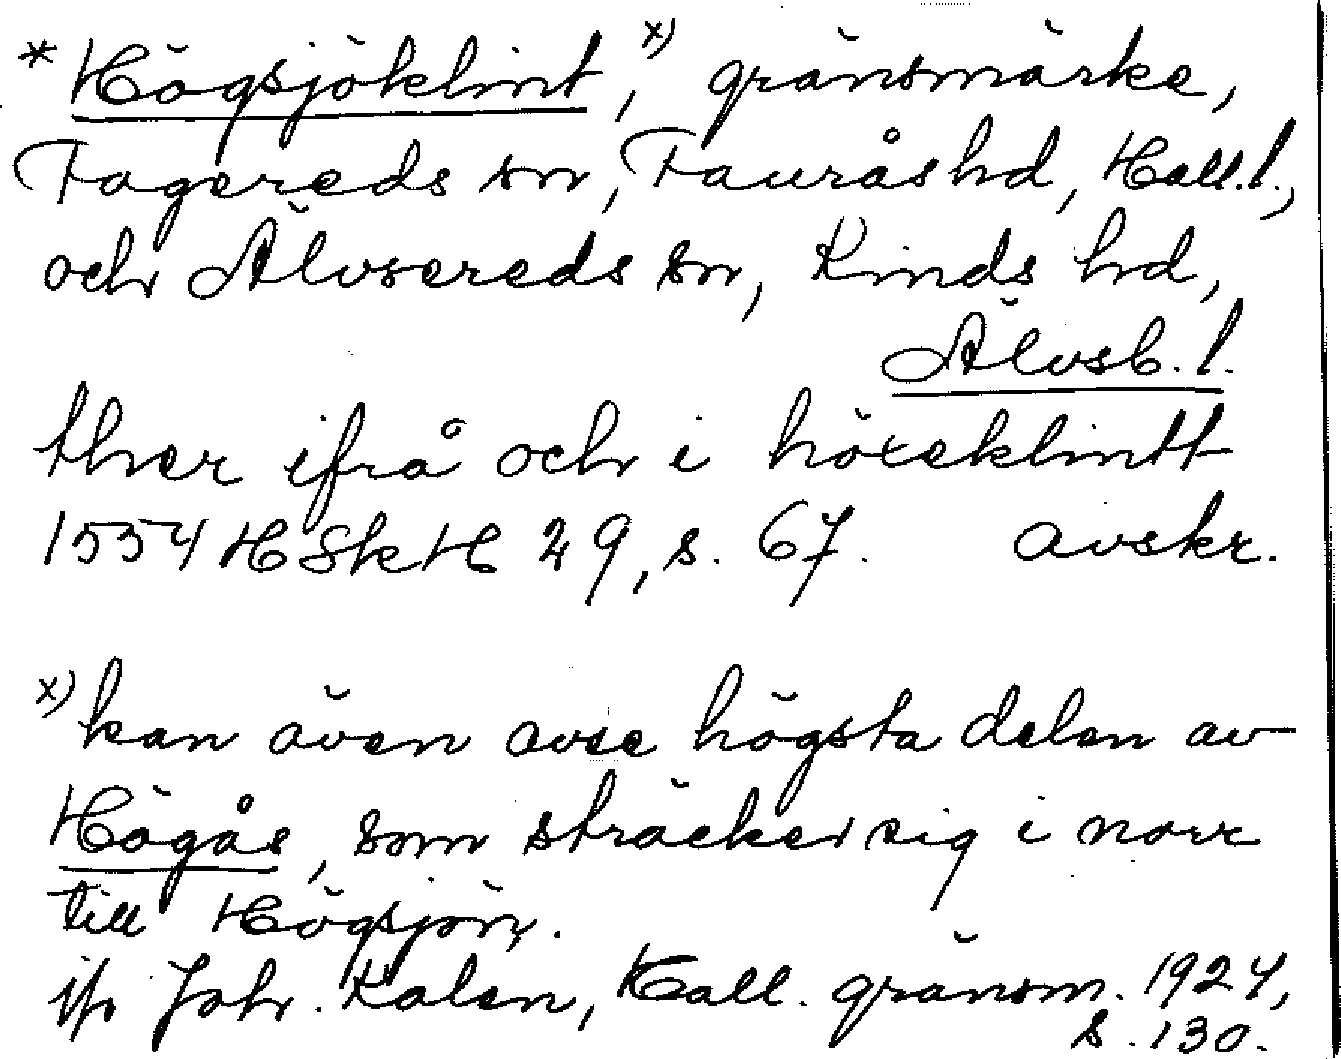 * Högsjöklint, x) gränsmärke,
Fagereds sn, Faurås hd, Hall. l.,
och Älvsereds sn, Kinds hd,
Älvsb. l.
ther ifrå och i höxeklintt
1554 HSkH 29, s. 67. avskr.
x) kan även avse högsta delen av
Högås, som sträcker sig i norr
till Högsjön.
jfr Joh. Kalén, Hall. gränsm. 1924,
s. 130.